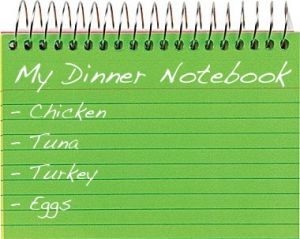 My Dinner Notebook
- Chicken
- Tuna
- Turkey
- Eggs